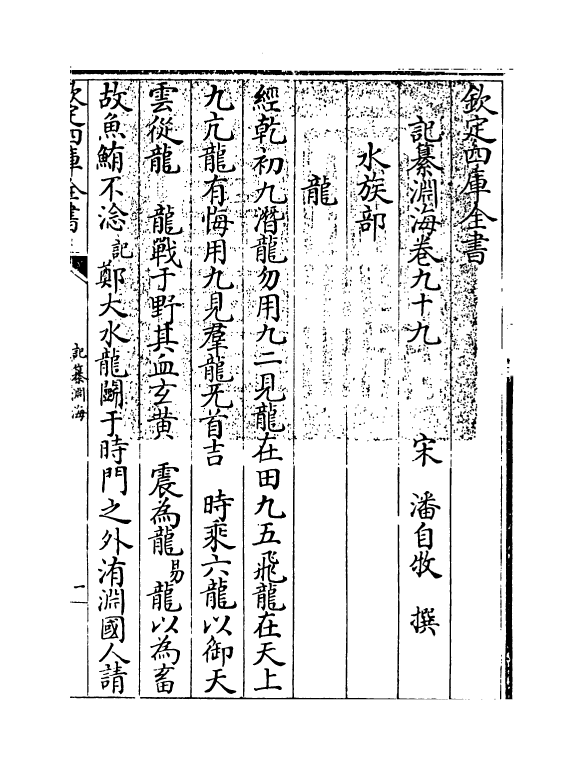 欽定四庫全書
記纂淵海卷九十九 宋 潘自牧 撰
水族部
龍
經乾初九潛龍勿用九二見龍在田九五飛龍在天上
九亢龍有悔用九見羣龍无首吉 時乘六龍以御天
雲從龍 龍戰于野其血玄黃 震為龍易 龍以為畜
故魚鮪不淰記 鄭大水龍鬭于時門之外洧淵國人請
欽定四庫全書 記纂淵海 一